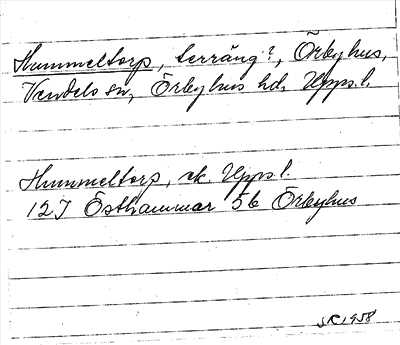 Hummeltorp, terräng?, Örbyhus,
Vendels sn, Örbyhus hd, Upps. l.
Hummeltorp, ek Upps l.
12I Östhammar 5b Örbyhus
SR 1958